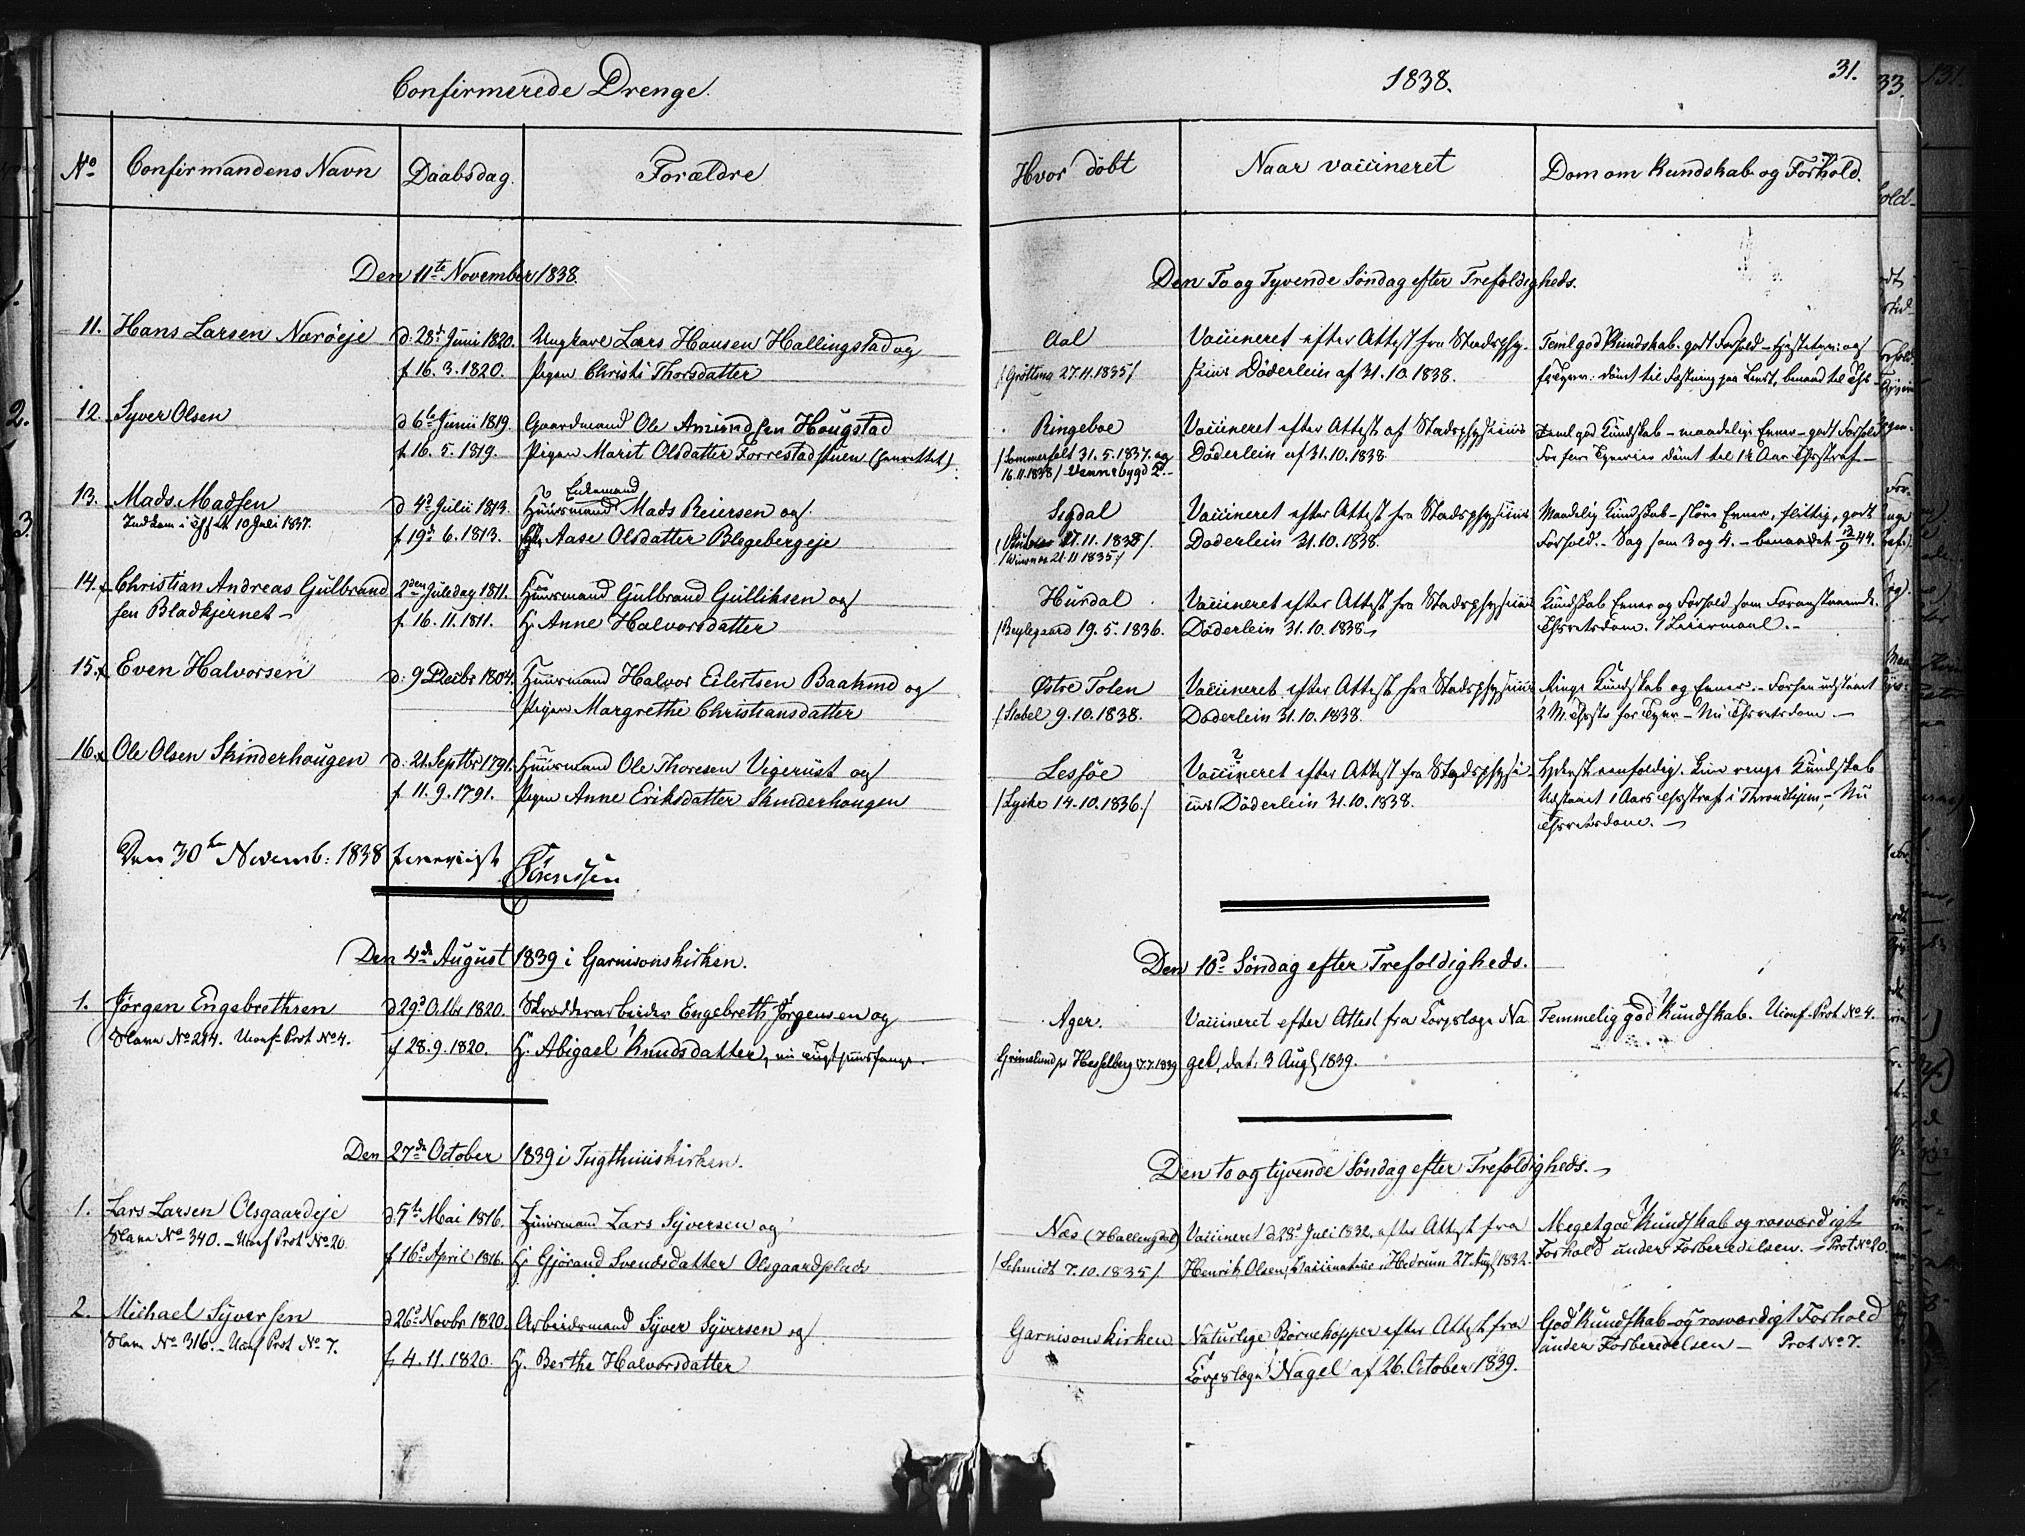 Confirmerede Drenge.
1838.
31.
No
Confirmandens Navn
Daabsdag.
Forældre
Hvor döbt
Naar vaccineret
Dom om Kundskab og Forhold.
Den 11te November 1838.
Den To og Tyvende Söndag efter Trefoldigheds.
11. Hans Larsen Næröeje
d. 28de Juni 1820. Ungkarl Lars Hansen Hallingstad og
f 16. 3. 1820. Pigen Christi Thorsdatter
Aal
/Grötting 27.11.1835/
Vaccineret efter Attest fra Stadsphy-
sicus Döderlein af 31.10.1838.
Teml god Kundskab. godt Forhold
12. Syver Olsen
d 6te Junii 1819. Gaardmand Ole Amundsen Hougstad
f 16. 5. 1819. Pigen Marit Olsdatter Forrestadstuen (henrettet).
Ringeboe
/Sommerfelt 31.5.1837. og
16.11.1838/
Vaccineret efter Attest af Stadsphysicus
Döderlein af 31.10.1838.
Teml god Kundskab – maadelige Evner – godt Forhold
13. Mads Madsen
Indkom i 10 Juli 1837.
d 4de Julii 1813. Huusmand Enkemand Mads Reiersen og
f 19de 6. 1813. Aase Olsdatter Blegebergeje
Sigdal
21.11.1835/
Vaccineret efter Attest fra Stadsphysicus
Döderlein 31.10.1838.
Maadelig Kundskab – Evner, flittig, godt
Forhold. – Sag som 3 og 4.
14. Christian Andreas Gulbrand
sen Bladkjernet –
2den Juledag 1811. Huusmand Gulbrand Gulliksen og
f. 16. 11. 1811. H. Anne Halvorsdatter
Hurdal
/Beylegaard 19.5.1836.
Vaccineret efter Attest fra Stadsphysicus
Döderlein 31.10.1838.
Kundskab Evner og Forhold som Foranstaaende.
15. Even Halvorsen
d: 9 Decbr 1804. Huusmand Halvor Eilertsen Baakind og
Pigen Margrethe Christiansdatter
Østre Toten
/Stabel 9.10.1838.
Vaccineret efter Attest fra Stadsphysicus
Döderlein 31.10.1838.
Ringe Kundskab og Evner.
16. Ole Olsen Skinderhougen
d: 21. Septbr 1791. Huusmand Ole Thoresen Vigerust og
f 11. 9. 1791. Pigen Anne Eriksdatter Skinderhougen
Lessöe
14.10.1836/
Vaccineret efter Attest fra Stadsphysi-
cus Döderlein 31.10.1838.
Yderst eenfoldig. Kun ringe Kundskab
Udstaaet 1 Aars i Throndhjem, – Nu
Den 30te Novemb: 1838
Den 4de August 1839 i Garnisonskirken.
Den 10de Söndag efter Trefoldigheds.
1. Jörgen Engebrethsen
Slave No 274. Uconf Prot No 4.
d 29de Octbr 1820. Engebreth Jörgensen og
f 28.9.1820. H. Abigael Knudsdatter, nu Tugthuusfange.
Ager.
Hesselberg 17.7.1839
Vaccineret efter Attest fra Corpslæge Na
gel, dat. 3 Aug 1839.
Temmelig god Kundskab. Uconf. Prot No 4.
Den 27de October 1839 i Tugthuuskirken.
Den to og tyvende Söndag efter Trefoldigheds. –
1. Lars Larsen Olsgaardeje
Slave No 340. – Uconf Prot No 20.
d: 5te Mai 1816. Huusmand Lars Syversen og
f 16de April 1816. H. Gjörand Svendsdatter Olsgaardplads
Næs (Hallingdal)
/Schmidt 7.10.1835/.
Vaccineret d 28de Juli 1832, efter Attest fra
Henrik Olsen, Vaccinateur i Hedrum 27 Aug 1832.
Meget god Kundskab og rosværdigt
Forhold under Forberedelsen. – Prot No 20.
2. Michael Syversen
Slave No 316. – Uconf Prot No 7.
d 26de Novbr 1820. Arbeidsmand Syver Syversen og
f. 4. 11. 1820. H. Berthe Halvorsdatter
Garnisonskirken
Naturlige Börnekopper efter Attest fra
Corpslæge Nagel af 26. October 1839.
God Kundskab og rosværdigt Forhold
under Forberedelsen – Prot No 7.